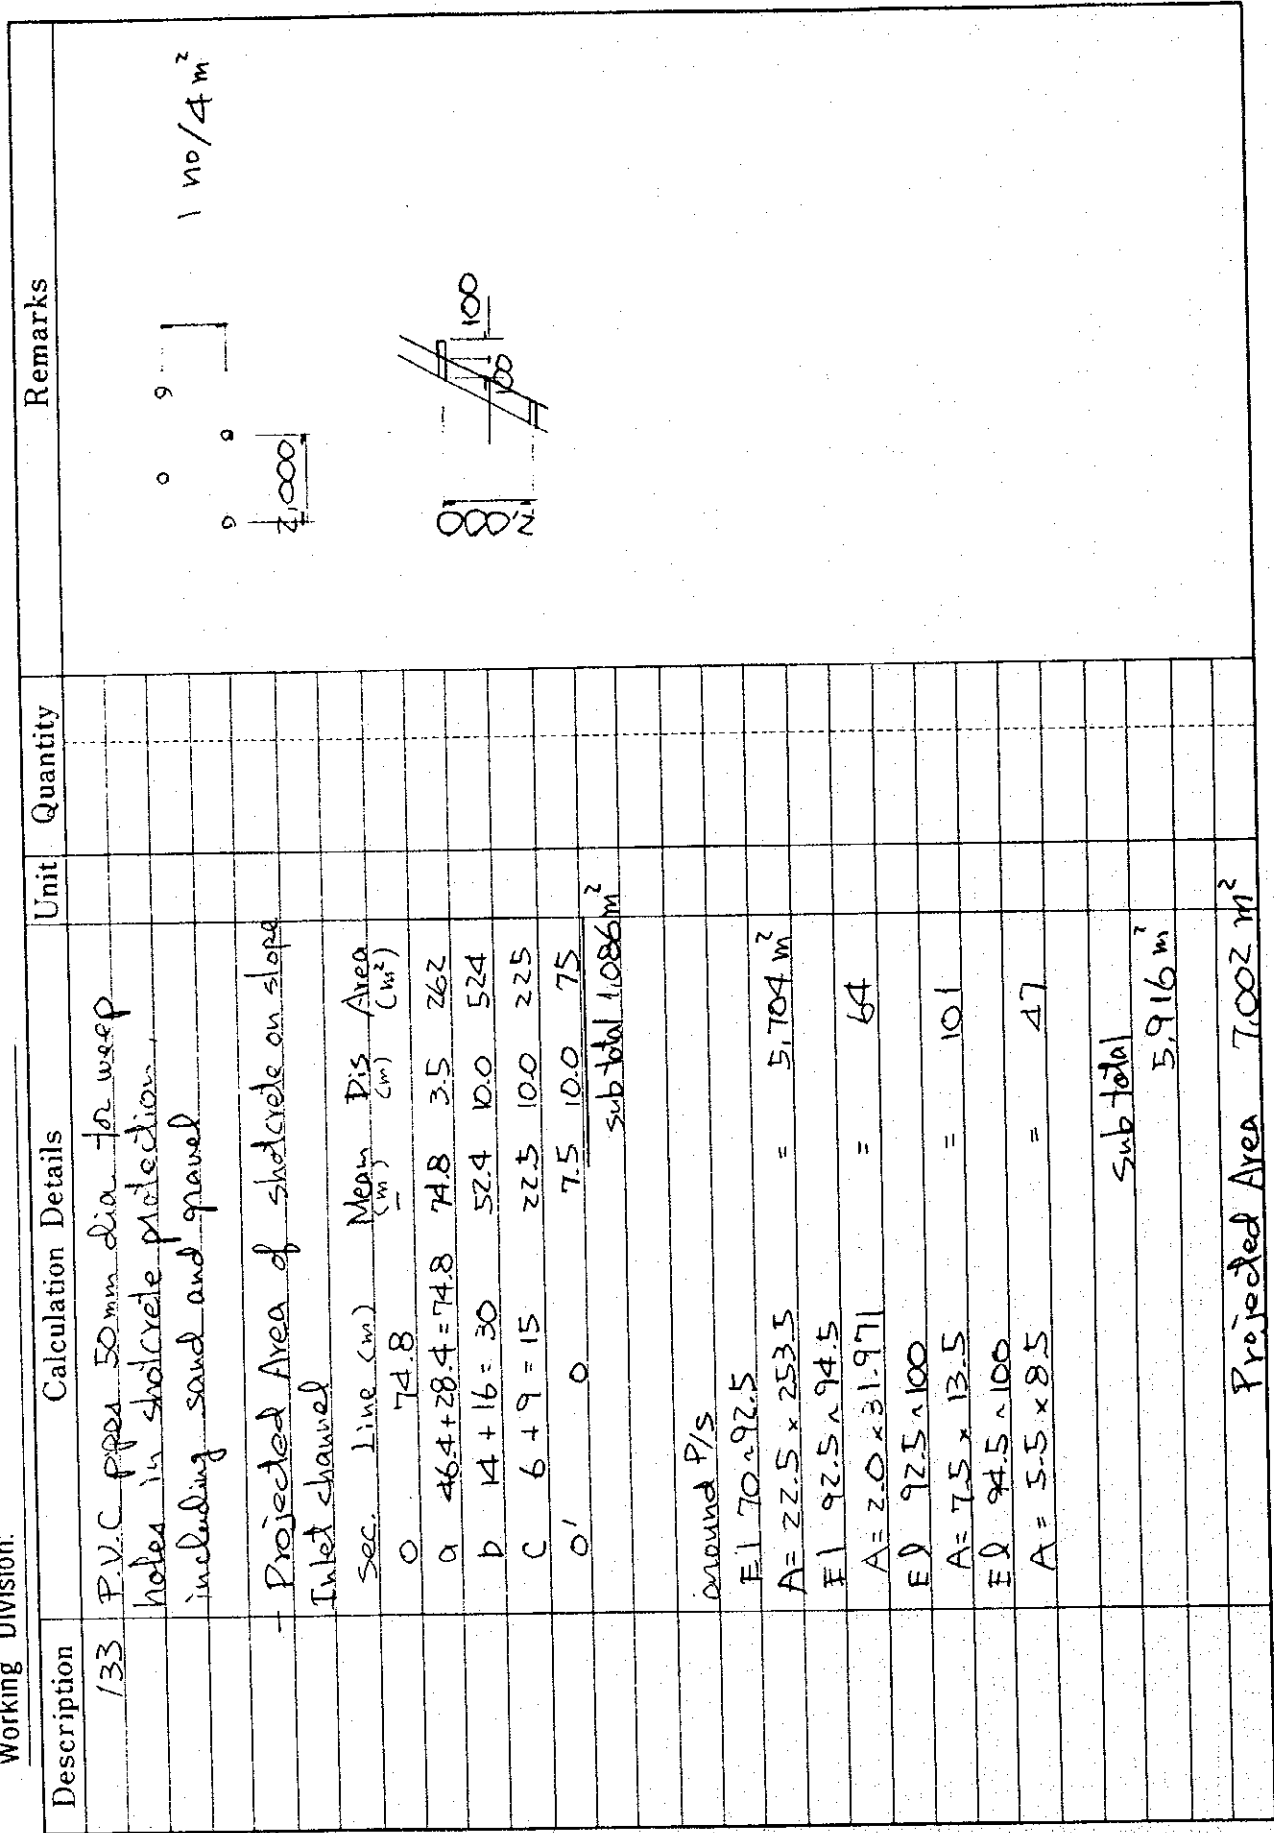 Working Division.
Description Calculation Details Unit Quantity Remarks
133 P.V.C pipes 50mm dia for weep
holes in shotcrete protection,
including sand and gravel
- Projected Area of shotcrete on slope
Inlet channel
Sec. Line (m) Mean (m) Dis (m) Area (m²)
O 74.8 -
a 46.4 + 28.4 = 74.8 74.8 3.5 262
b 14 + 16 = 30 52.4 10.0 524
C 6 + 9 = 15 22.5 10.0 225
O' 0 7.5 10.0 75
sub total 1,086 m²
around P/s
El 70 ~ 92.5
A = 22.5 × 253.5 = 5,704 m²
El 92.5 ~ 94.5
A = 2.0 × 31.971 = 64
El 92.5 ~ 100
A = 7.5 × 13.5 = 101
El 94.5 ~ 100
A = 5.5 × 8.5 = 47
Sub total
5,916 m²
Projected Area 7,002 m²
1 no/4 m²
2,000
2,000
100
100